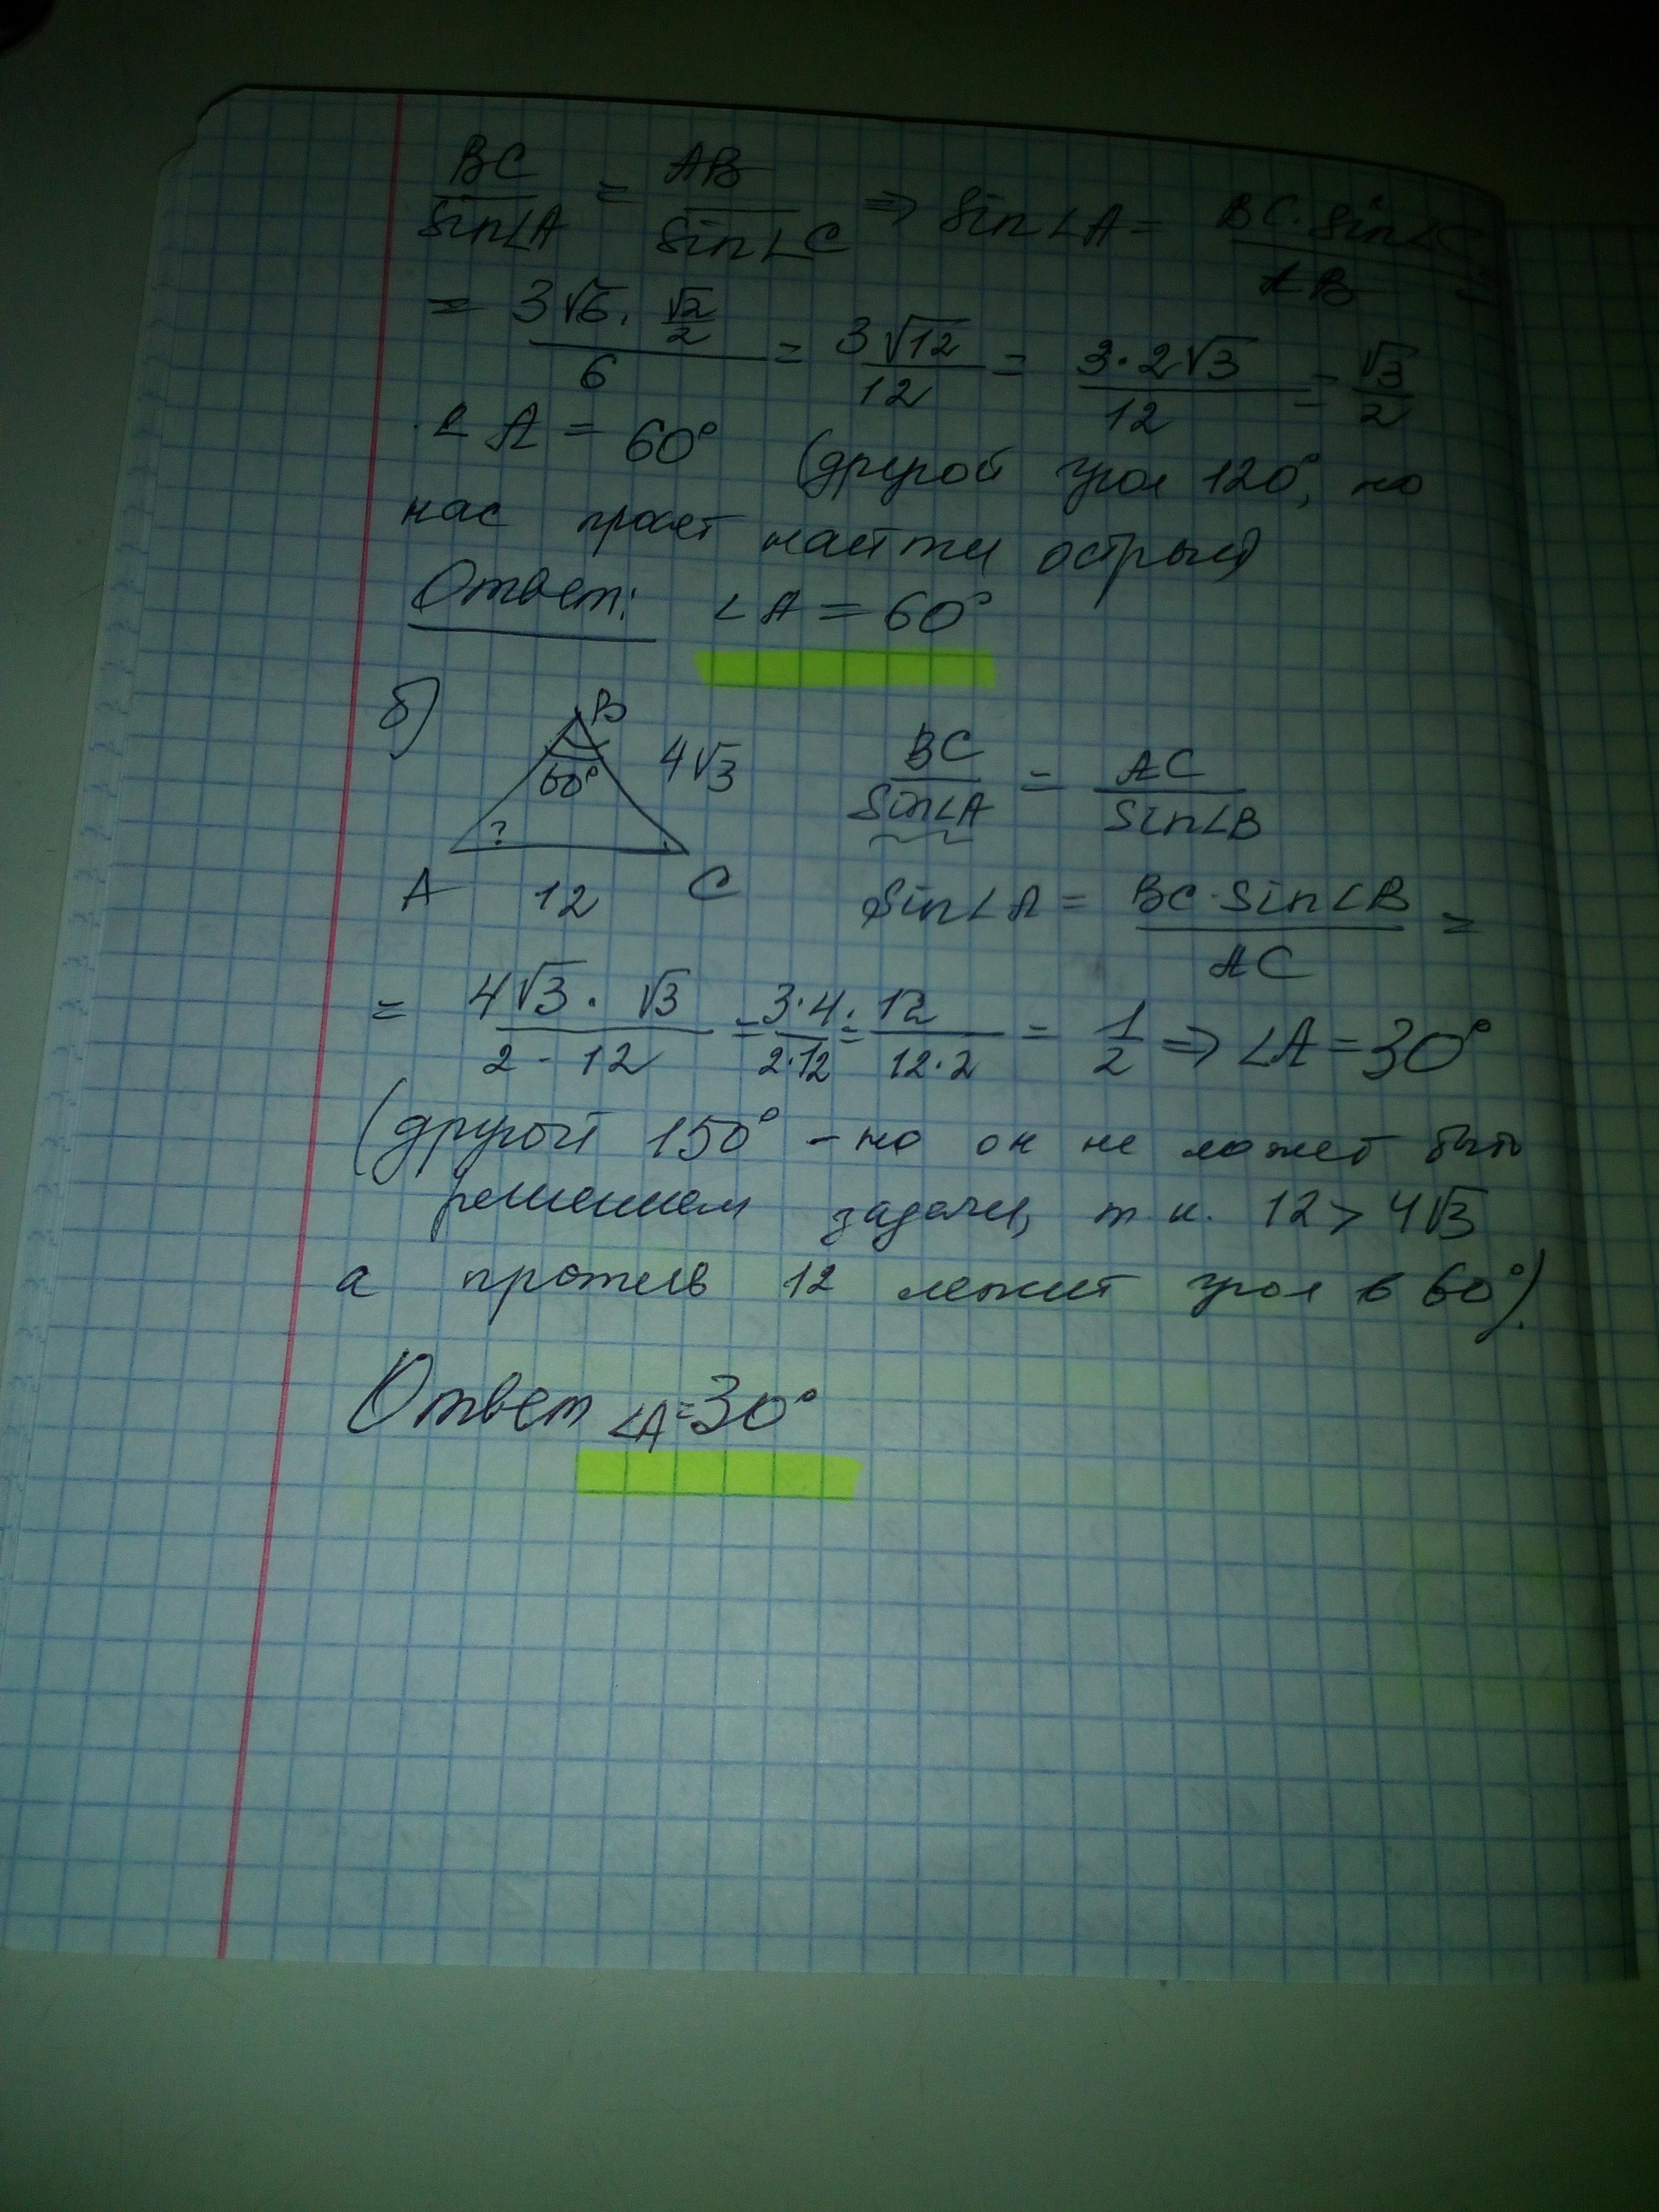 BC/sin∠A = AB/sin∠C ⇒ sin∠A = BC·sin∠C/AB =
= 3√6·√2/2/6 = 3√12/12 = 3·2√3/12 = √3/2
∠A = 60° (другой угол 120°, но
нас просят найти острый)
Ответ: ∠A = 60°
б)
B
60°
4√3
?
A 12 C
BC/sin∠A = AC/sin∠B
sin∠A = BC·sin∠B/AC =
= 4√3·√3/2·12 = 3·4/2·12 = 12/12·2 = 1/2 ⇒ ∠A = 30°
(другой 150° – но он не может быть
решением задачи, т.к. 12 > 4√3
а против 12 лежит угол в 60°).
Ответ ∠A = 30°